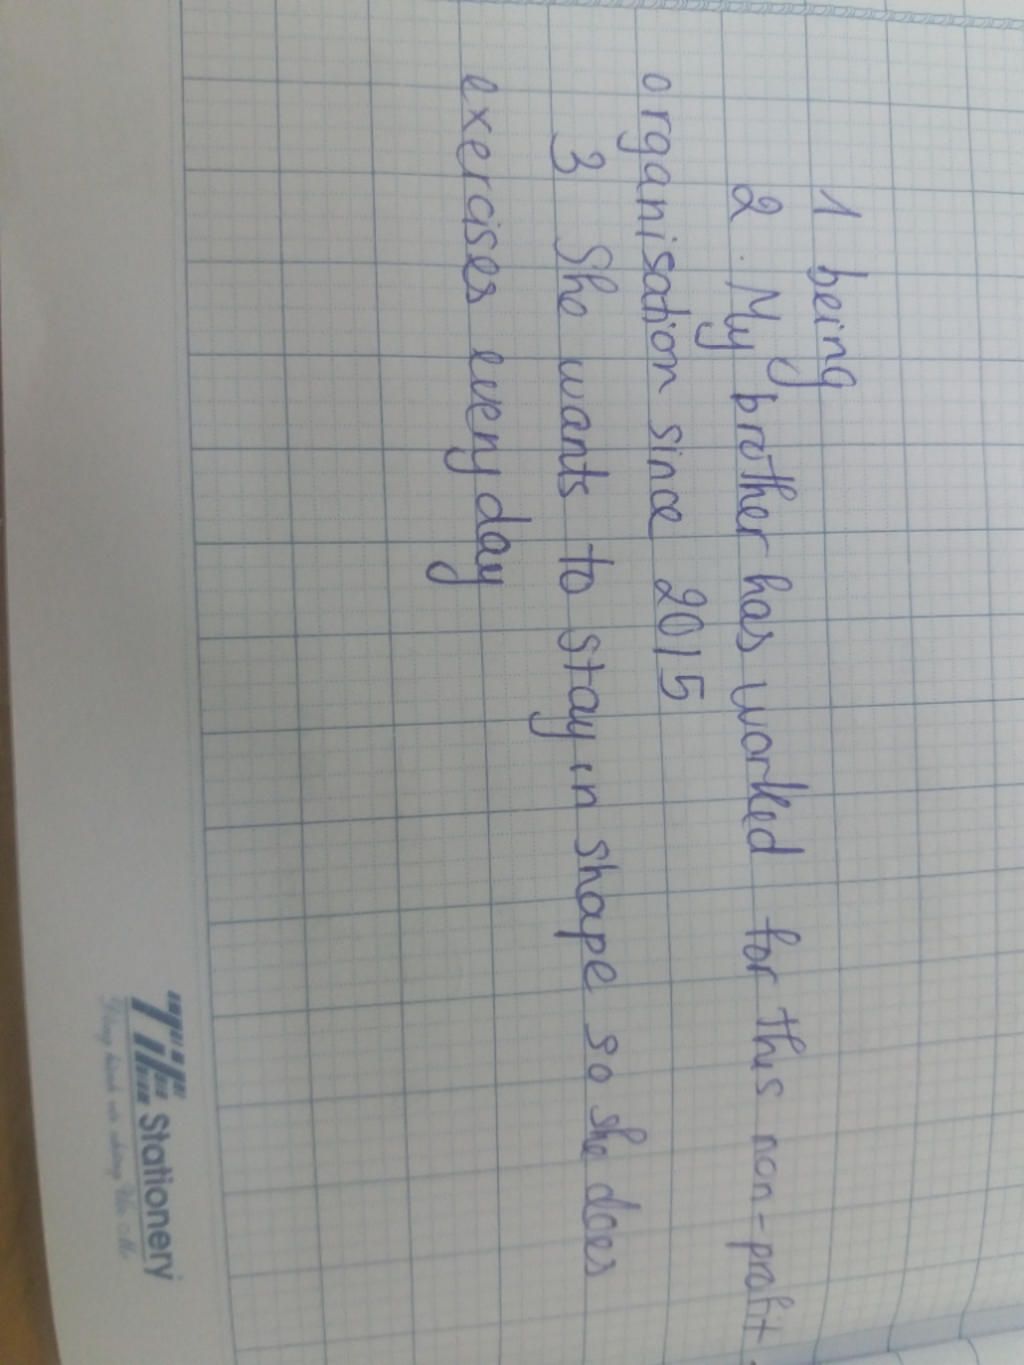 1 being
2. My brother has worked for this non-profit
organisation since 2015
3 She wants to stay in shape so she does
exercises every day
Stationery